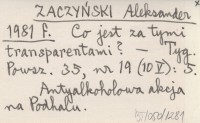 ZACZYŃSKI Aleksander
1981 r. Co jest za tymi
transparentami? — Tyg.
Powsz. 35, nr 19 (10 V): 5.
Antyalkoholowa akcja
na Podhalu.